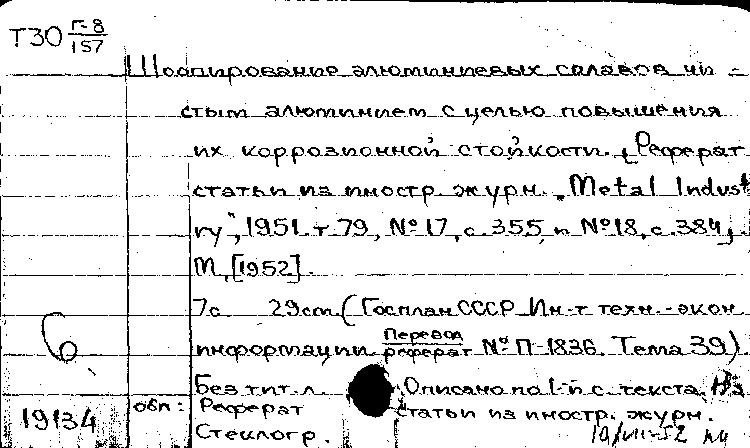 Т30 Г-8/157
Шоопирование алюминиевых сплавов чи-
стым алюминием с целью повышения
их коррозионной стойкости. [Реферат
статьи из иностр. журн. „Metal Indust
ry", 1951. т. 79, №17, с. 355, и №18, с. 384].
М, [1952].
7с. 29см. (Госплан СССР Ин-т техн.-экон
информации. Перевод реферат № П-1836. Тема 39)
6
Без тит. л. Описано по 1-й с. текста. На
обл: Реферат статьи из иностр. журн.
19134
Стеклогр.